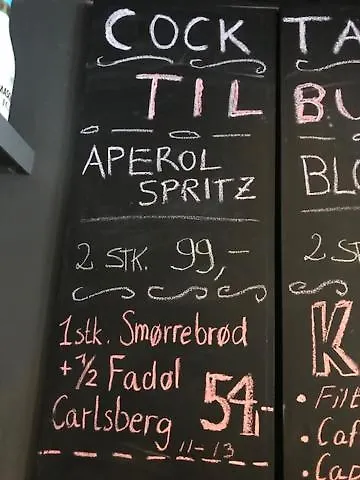 COCK TA
TIL BU
APEROL
SPRITZ
BLO
2 STK. 99,-
2 S
1stk. Smørrebrød
+ 1/2 Fadøl
Carlsberg
54,-
11-13
K
• Filt
• Caf
• Cap